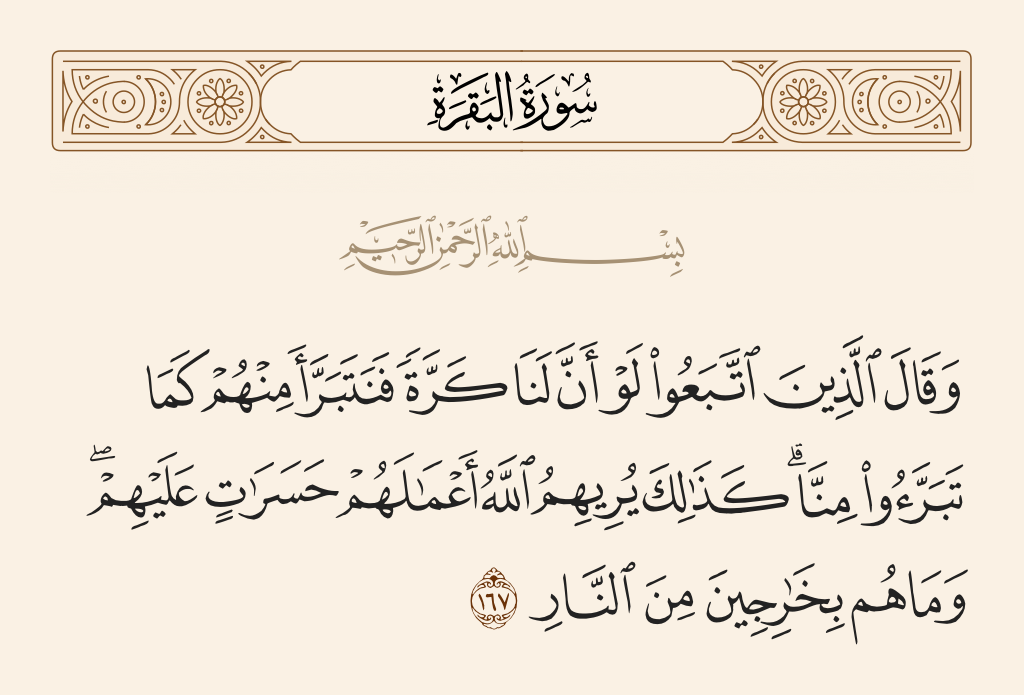 سُورَةُ البَقَرَةِ
بِسْمِ ٱللَّهِ ٱلرَّحْمَٰنِ ٱلرَّحِيمِ
وَقَالَ ٱلَّذِينَ ٱتَّبَعُوا۟ لَوْ أَنَّ لَنَا كَرَّةً فَنَتَبَرَّأَ مِنْهُمْ كَمَا
تَبَرَّءُوا۟ مِنَّا ۗ كَذَٰلِكَ يُرِيهِمُ ٱللَّهُ أَعْمَٰلَهُمْ حَسَرَٰتٍ عَلَيْهِمْ ۖ
وَمَا هُم بِخَٰرِجِينَ مِنَ ٱلنَّارِ ١٦٧